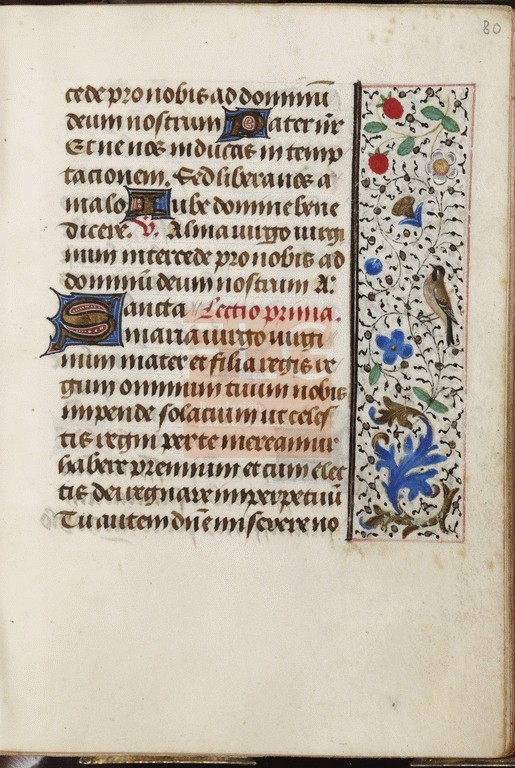 80
cede pro nobis ad dominū
deum nostrum Pater nr̄
Et ne nos inducas in temp
tacionem. Sed libera nos a
malo Iube domine bene
dicere. V. Alma uirgo uirgi
num intercede pro nobis ad
dominū deum nostrum A.
Sancta Lectio prima.
maria uirgo uirgi
num mater et filia regis re
gium omnium tuum nobis
impende solacium ut celes
tis regni per te mereamur
habere premium et cum elec
tis dei regnare inperpetuū
Tu autem dn̄e miserere no